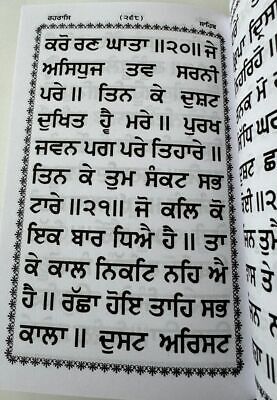 ਰਹਰਾਸਿ (੨੬੮) ਸਾਹਿਬ
ਕਰੋ ਰਣ ਘਾਤਾ ॥੨੦॥ ਜੇ
ਅਸਿਧੁਜ ਤਵ ਸਰਨੀ
ਪਰੇ ॥ ਤਿਨ ਕੇ ਦੁਸ਼ਟ
ਦੁਖਿਤ ਹ੍ਵੈ ਮਰੇ ॥ ਪੁਰਖ
ਜਵਨ ਪਗ ਪਰੇ ਤਿਹਾਰੇ ॥
ਤਿਨ ਕੇ ਤੁਮ ਸੰਕਟ ਸਭ
ਟਾਰੇ ॥੨੧॥ ਜੋ ਕਲਿ ਕੋ
ਇਕ ਬਾਰ ਧਿਐ ਹੈ ॥ ਤਾ
ਕੇ ਕਾਲ ਨਿਕਟਿ ਨਹਿ ਐ
ਹੈ ॥ ਰੱਛਾ ਹੋਇ ਤਾਹਿ ਸਭ
ਕਾਲਾ ॥ ਦੁਸਟ ਅਰਿਸਟ